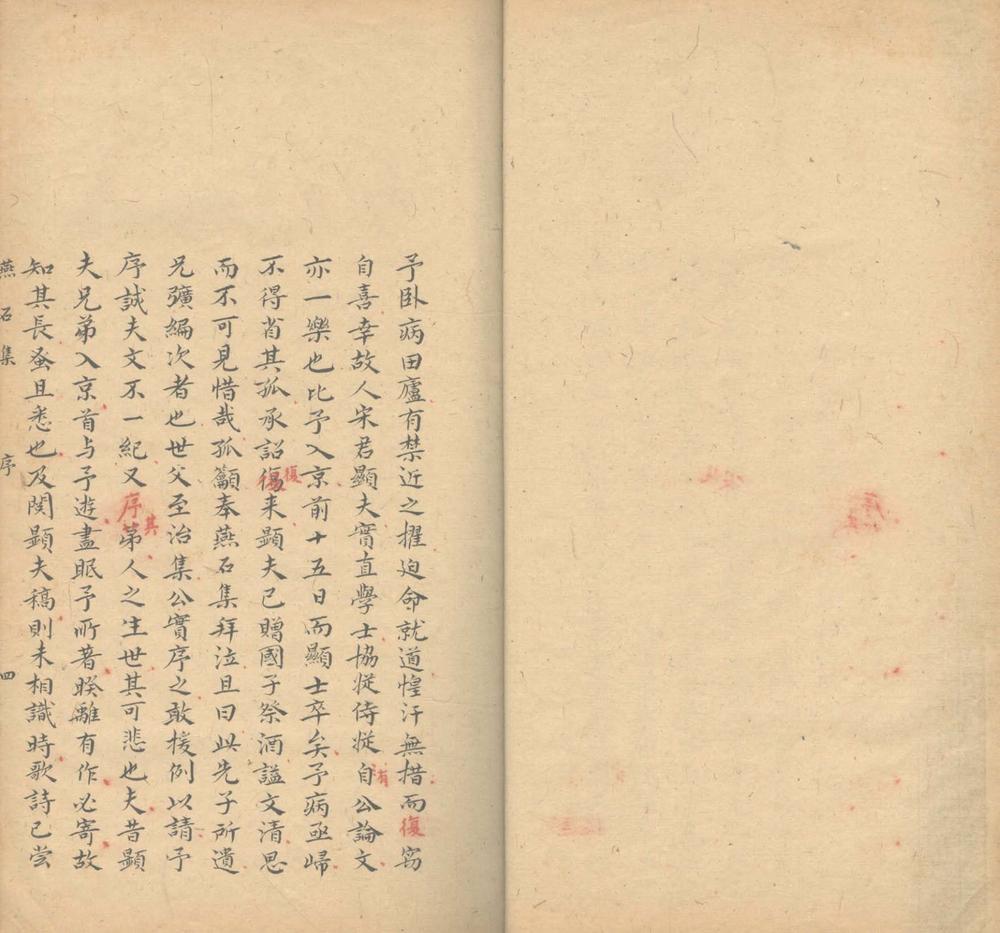 予卧病田廬有禁近之擢迫命就道惶汗無措而復窃
自喜幸故人宋君顯夫實直學士協從侍從自有公論文
亦一樂也比予入京前十五日而顯士卒矣予病亟歸
不得省其孤承詔傷復来顯夫已贈國子祭酒謚文清思
而不可見惜哉孤籲奉燕石集拜泣且曰此先子所遺
兄彍編次者也世父至治集公實序之敢援例以請予
序誠夫文不一紀又序其苐人之生世其可悲也夫昔顯
夫兄苐入京首与予逰盡眂予所著暌離有作必寄故
知其長蚤且悉也及閱顯夫稿則未相識時歌詩已尝
燕石集 序 四